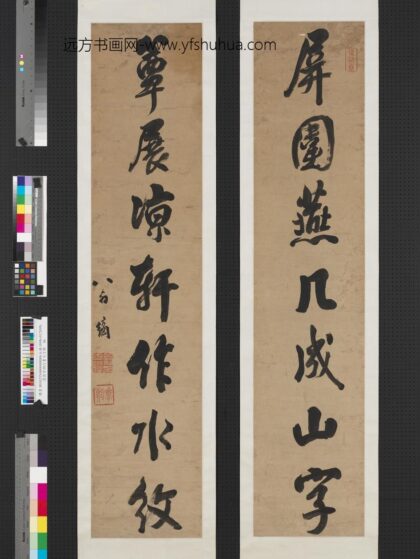 远方书画网-www.yfshuhua.com
屏圍燕几成山字
簟展凉軒作水紋